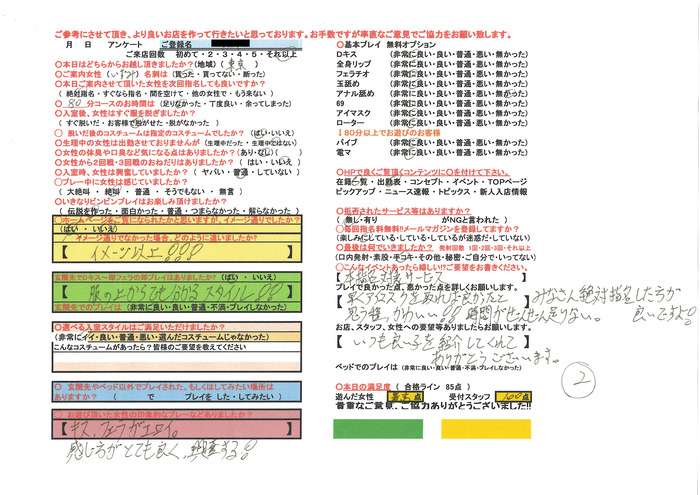 ご参考にさせて頂き、より良いお店を作って行きたいと思っております。お手数ですが率直なご意見でご協力をお願い致します。
月 日 アンケート ご登録名
ご来店回数 初めて・2・3・4・5・それ以上
〇本日はどちらからお越し頂きましたか?(地域)(東京)
〇ご案内女性 名刺は(貰った・貰ってない・断った)
〇本日ご案内させて頂いた女性を次回指名しても良いですか?
(絶対指名・すぐなら指名・間を空けて・他の女性で・もう来ない)
〇 80 分コースのお時間は(足りなかった・丁度良い・余ってしまった)
〇入室後、女性はすぐ服を脱ぎましたか?
(すぐ脱いだ・お客様で脱がせた・脱がなかった)
〇 脱いだ後のコスチュームは指定のコスチュームでしたか?(はい・いいえ)
〇生理中の女性は出勤させておりませんが(生理中だった・生理中ではない)
〇女性の体臭や口臭など気になる点はありましたか?(あり・なし)
〇女性から2回戦・3回戦のおねだりはありましたか?(はい・いいえ)
〇入室時、女性は興奮していましたか?(ヤバい・普通・していない)
〇プレー中に女性は感じていましたか?
(大絶叫・絶叫・普通・そうでもない・無言)
〇いきなりビンビンプレイはお楽しみ頂けましたか?
(伝説を作った・面白かった・普通・つまらなかった・解らなかった)
〇ホームページをご覧になられたかと思いますが、イメージ通りでしたか?
(はい・いいえ)
イメージ通りでなかった場合、どのように違いましたか?
【イメージ以上!!!】
玄関先でDキス〜即フェラの即プレイはありましたか?(はい・いいえ)
【服の上からでも分かるスタイル!!】
玄関先でのプレイは(非常に良い・良い・普通・不満・プレイしなかった)
〇選べる入室スタイルはご満足いただけましたか?
(非常にイイ・良い・普通・悪い・選んだコスチュームじゃなかった)
こんなコスチュームがあったら?皆様のご要望を教えてください
〇 玄関先やベッド以外でプレイされた、もしくはしてみたい場所は
ありますか? ( で プレイを した・してみたい)
〇お遊び頂いた女性の印象的なプレーなどありましたか?
【キス、フェラがエロイ。】
感じ方がとても良く、興奮する!!
〇基本プレイ 無料オプション
Dキス (非常に良い・良い・普通・悪い・無かった)
全身リップ (非常に良い・良い・普通・悪い・無かった)
フェラチオ (非常に良い・良い・普通・悪い・無かった)
玉舐め (非常に良い・良い・普通・悪い・無かった)
アナル舐め (非常に良い・良い・普通・悪い・無かった)
69 (非常に良い・良い・普通・悪い・無かった)
アイマスク (非常に良い・良い・普通・悪い・無かった)
ローター (非常に良い・良い・普通・悪い・無かった)
↓80分以上でお遊びのお客様
バイブ (非常に良い・良い・普通・悪い・無かった)
電マ (非常に良い・良い・普通・悪い・無かった)
〇HPで良くご覧頂くコンテンツに〇を付けて下さい。
在籍一覧・出勤表・コンセプト・イベント・TOPページ
ピックアップ・ニュース速報・トピックス・新人入店情報
〇拒否されたサービス等はありますか?
(無し・有り がNGと言われた)
〇毎回指名料無料!!メールマガジンを登録してますか?
(楽しみにしている・しているが迷惑だ・していない)
〇最後は何でいきましたか? 発射回数 1回・2回・3回・それ以上
(口内発射・素股・手コキ・その他・秘密・ご自分で・いってない)
〇こんなイベントあったら嬉しい!?ご要望をお書きください。
【本指名対象サービス
プレイで良かった点、悪かった点を詳しくお願いします。
思う程、かわいい!! 時間がぜんぜん足りない。
みなさん絶対指名した方が
良いですよ!
お店、スタッフ、女性への要望等ありましたらお願いします。
【いつも良い子を紹介してくれて
ありがとうございます。
ベッドでのプレイは(非常に良い・良い・普通・不満・プレイしなかった)
②
〇本日の満足度 (合格ライン 85点)
遊んだ女性 点 受付スタッフ 100点
貴重なご意見、ご協力ありがとうございました!!